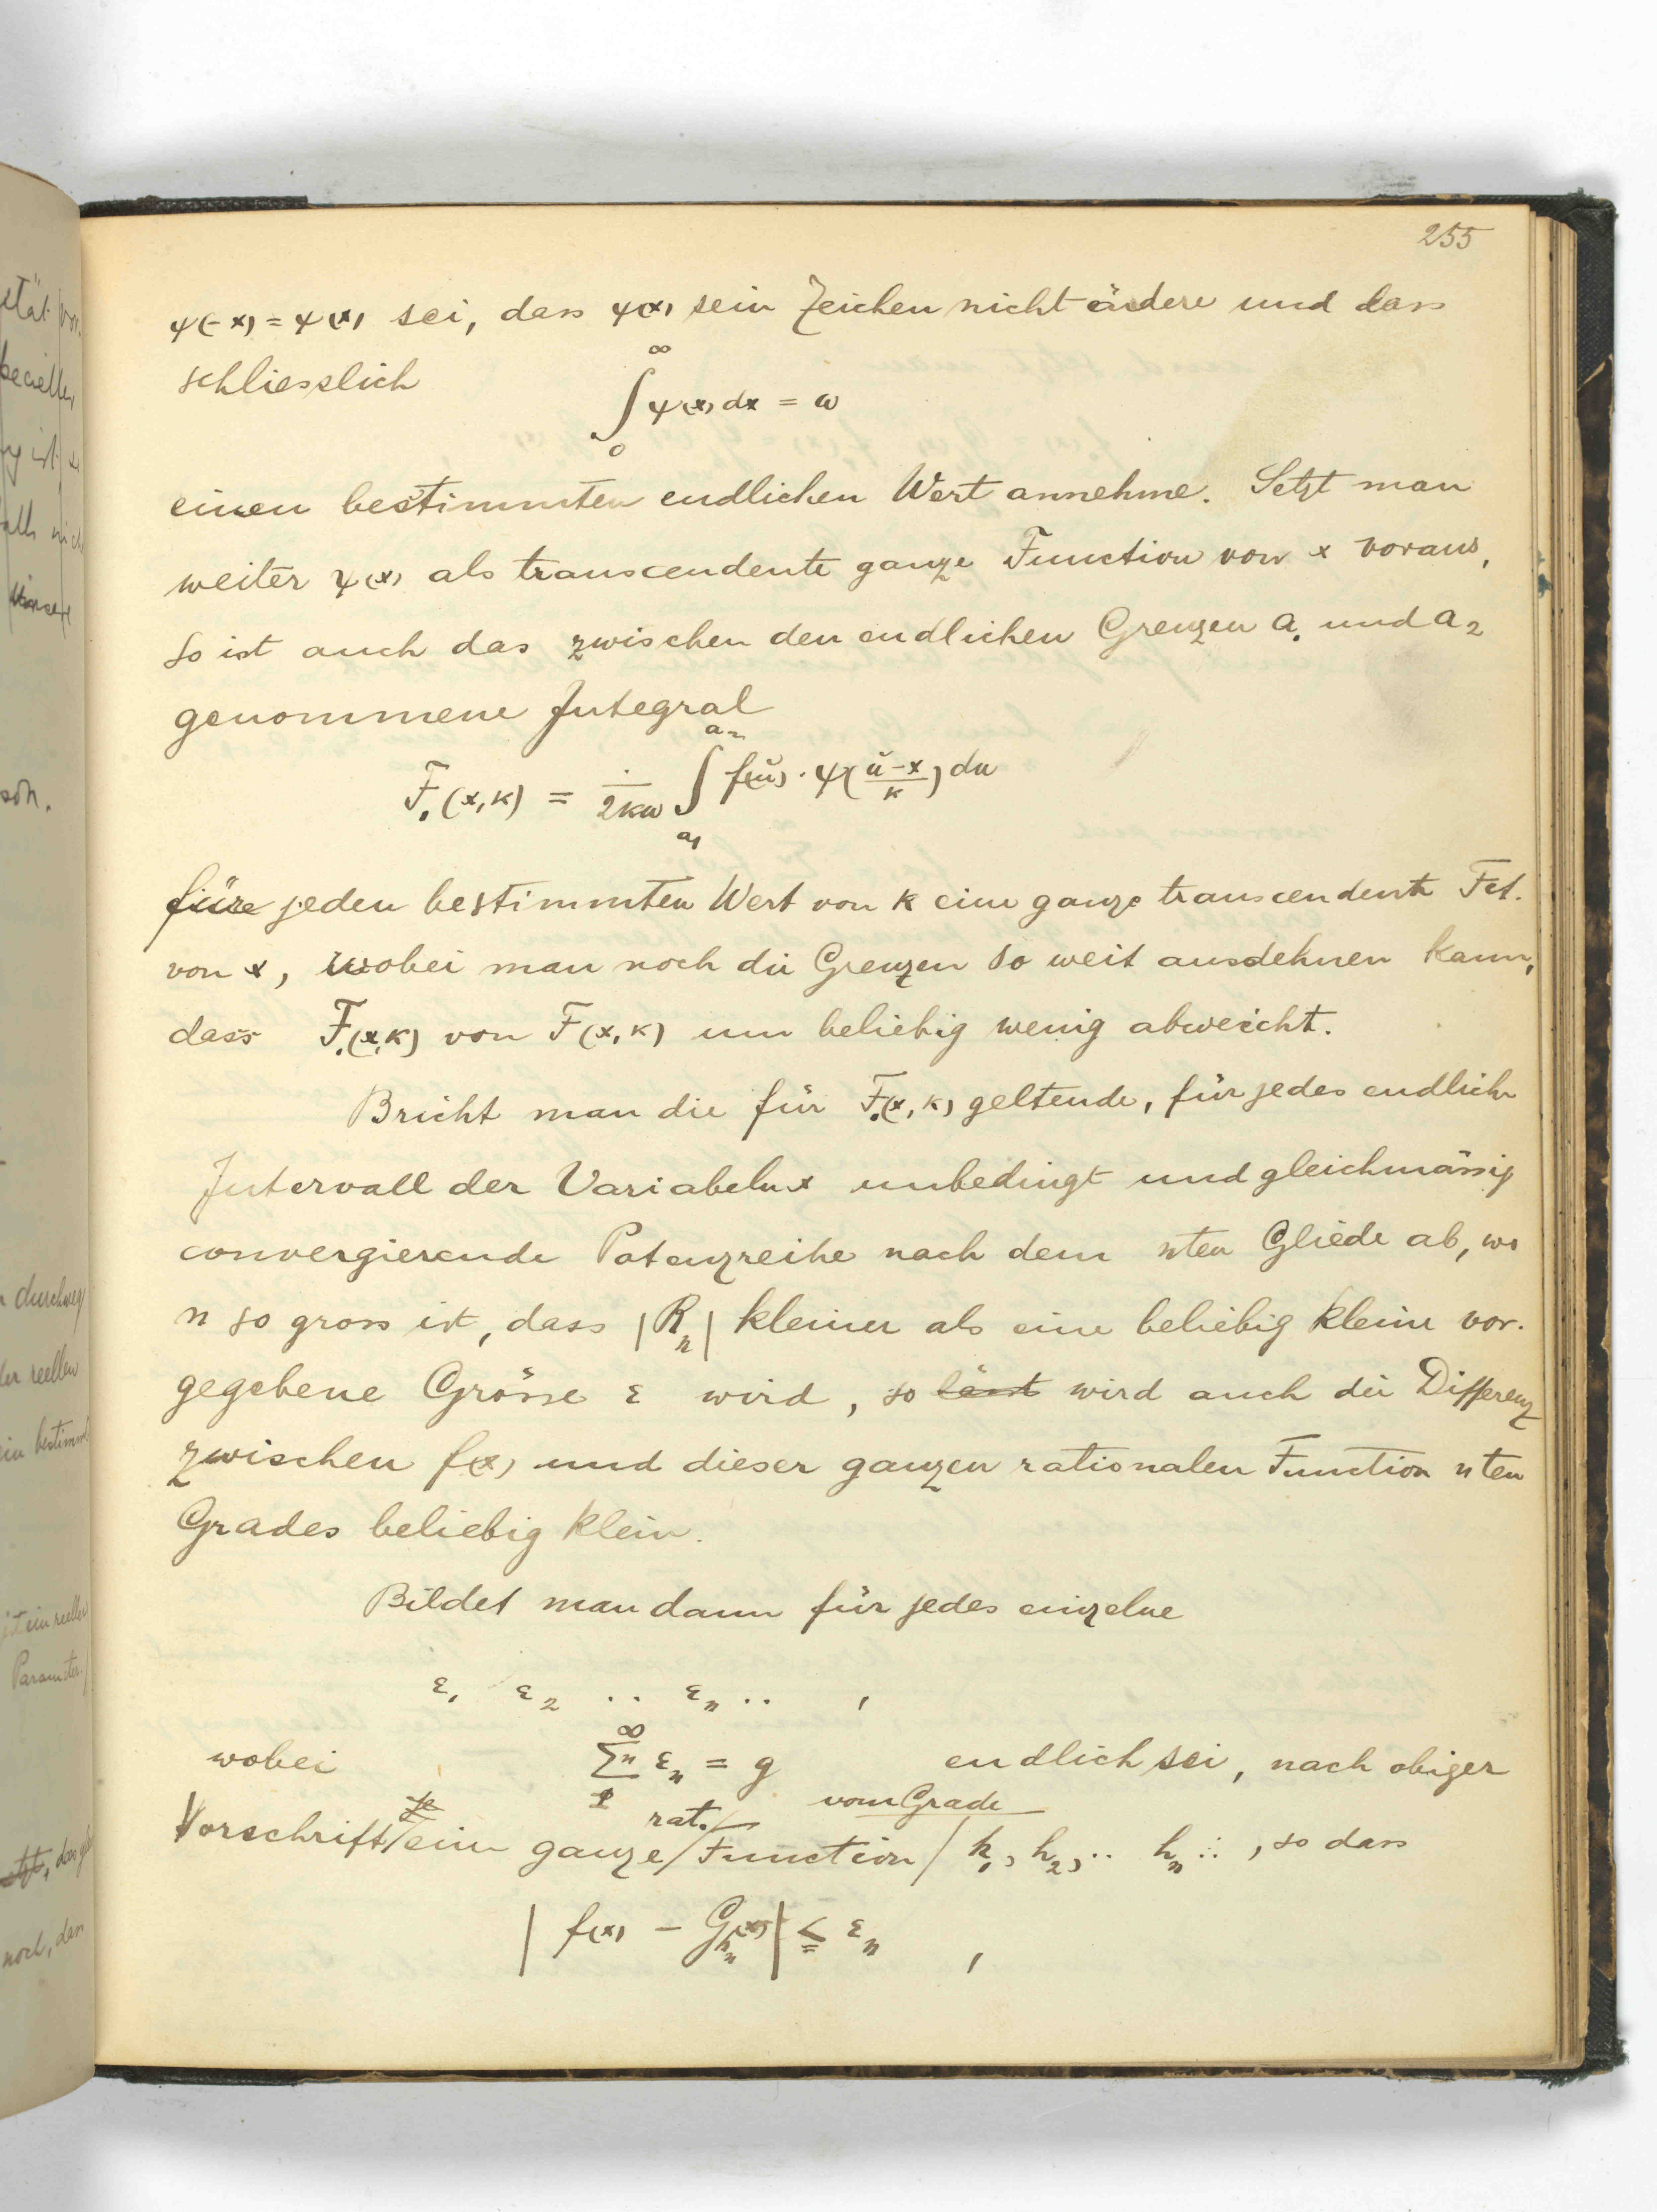 255
ψ(-x) = ψ(x) sei, dass ψ(x) sein Zeichen nicht ändere und dass
schliesslich ∫₀^∞ ψ(x) dx = ω
einen bestimmten endlichen Wert annehme. Setzt man
weiter ψ(x) als transcendente ganze Function von x voraus,
so ist auch das zwischen den endlichen Grenzen a₁ und a₂
genommene Integral
F₁(x,k) = 1/2kω ∫_{a₁}^{a₂} f(u) · ψ(u-x/k) du
für jeden bestimmten Wert von k eine ganze transcendente Fct.
von x, wobei man noch die Grenzen so weit ausdehnen kann,
dass F₁(x,k) von F(x,k) um beliebig wenig abweicht.
Bricht man die für F₁(x,k) geltende, für jedes endliche
Intervall der Variabeln x unbedingt und gleichmässig
convergierende Potenzreihe nach dem nten Gliede ab, wo
n so gross ist, dass |Rₙ| kleiner als eine beliebig kleine vor-
gegebene Grösse ε wird, so lässt wird auch die Differenz
zwischen f(x) und dieser ganzen rationalen Function nten
Grades beliebig klein.
Bildet man dann für jedes einzelne
ε₁ ε₂ .. εₙ .. ,
wobei ∑ₙ₁^∞ εₙ = g endlich sei, nach obiger
Vorschrift je eine ganze rat. Function vom Grade h₁, h₂, .. hₙ .. , so dass
| f(x) - G_{hₙ}(x) | ≦ εₙ ,
ität
durchweg
der reellen
ein bestimmt
ist ein reeller
Parameter
noch, dass